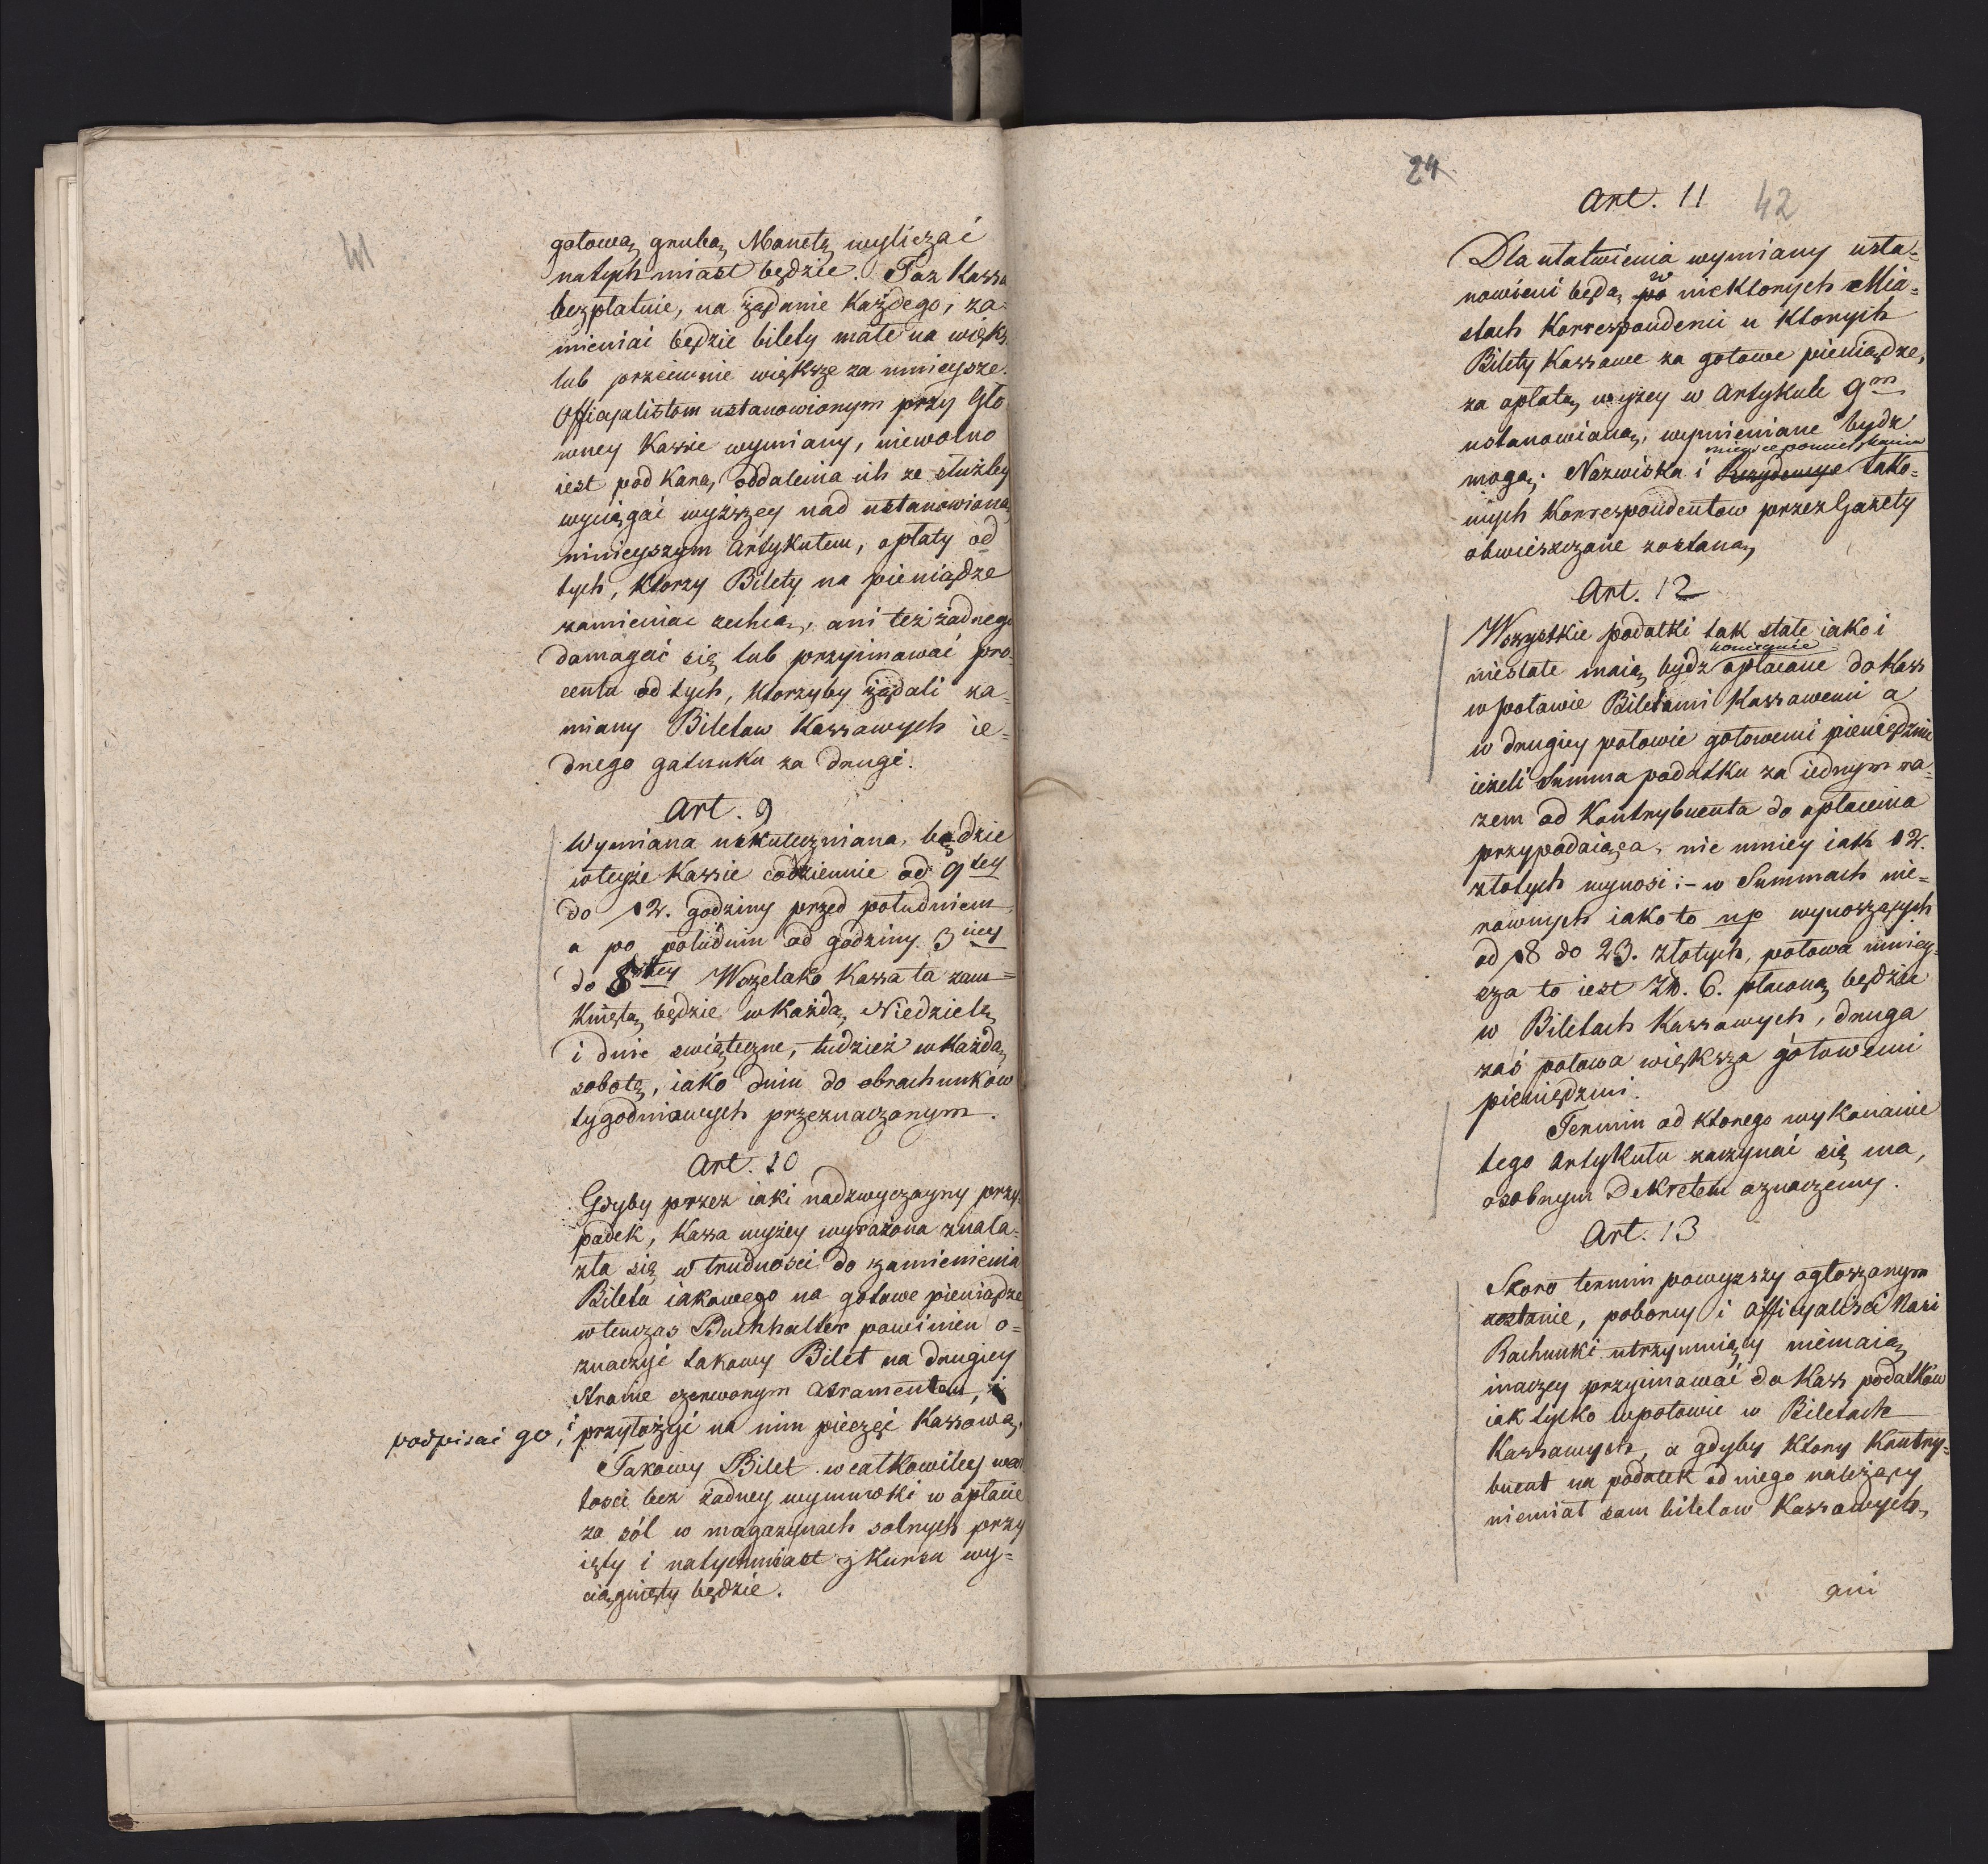 41
gotową grubą Monetą wyliczać
natychmiast będzie. Taż Kassa
bezpłatnie, na żądanie Każdego, za=
mieniać będzie bilety małe na więks
lub przeciwnie większe za mnieysze.
Officyalistom ustanowionym przy Głó
wney Kassie wymiany, niewolno
iest pod Karą oddalenia ich ze służby
wyciągać wyższey nad ustanowioną
ninieyszym Artykułem, opłaty od
tych, Ktorzy Bilety na pieniądze
zamieniać zechcą, ani też żadnego
domagać się lub przyimować pro=
centu od tych, Ktorzyby żądali za=
miany Biletow Kassowych ie=
dnego gatunku za drugi.
Art. 9
Wymiana uskuteczniana będzie
w teyże Kassie codziennie od 9tey
do 12. godziny przed południem
a po południu od godziny 3ciey
do 8mey Wszelako Kassa ta zam=
Kniętą będzie w Każdą Niedzielę
i dnie swiąteczne, tudzież w Każdą
sobotę, iako dniu do obrachunków
tygodniowych przeznaczonym.
Art. 10
Gdyby przez iaki nadzwyczayny przy=
padek, Kassa wyżey wyrażona znala=
zła się w trudności do zamienienia
Biletu iakowego na gotowe pieniądze
wtenczas Buchhalter powinien o=
znaczyć takowy Bilet na drugiey
stronie czerwonym atramentem, i
podpisać go, i przyłożyć na nim pieczęć Kassową.
Takowy Bilet w całkowitey war
tości bez żadney wymówki w opłacie
za sól w magazynach solnych przy
ięty i natychmiast z Kursu wy=
ciągnięty będzie.
24
42
Art. 11
Dla ułatwienia wymiany usta=
nowieni będą po w niektorych Mia=
stach Korrespondenci u Ktorych
Bilety Kassowe za gotowe pieniądze,
za opłatą wyżey w Artykule 9m
ustanowioną, wymieniane bydź
mieysce pomieszkania
mogą; Nazwiska i Rezydencye tako=
wych Korrespondentow przez Gazety
obwieszczone zostaną
Art. 12
Wszystkie podatki tak stałe iako i
koniecznie
niestałe maią bydź opłacane do Kass
w połowie Biletami Kassowemi a
w drugiey połowie gotowemi pieniędzmi
ieżeli Summa podatku za iednym ra=
zem od Kontrybuenta do opłacenia
przypadaiąca, nie mniey iak 12.
złotych wynosi:- w Summach nie=
rownych iako to np wynoszących
od 18 do 23. złotych, połowa mniey=
sza to iest Zł. 6. płaconą będzie
w Biletach Kassowych, druga
zaś połowa większa gotowemi
pieniędzmi.
Termin od ktorego wykonanie
tego Artykułu zaczynać się ma,
osobnym Dekretem oznaczemy.
Art. 13
Skoro termin powyższy ogłoszonym
zostanie, poborcy i Officyaliści Kassi
Rachunki utrzymuiący niemaią
inaczey przyimować do Kass podatkow
iak tylko w połowie w Biletach
Kassowych, a gdyby Ktory Kontry=
buent na podatek od niego należący
niemiał sam biletow Kassowych,
ani